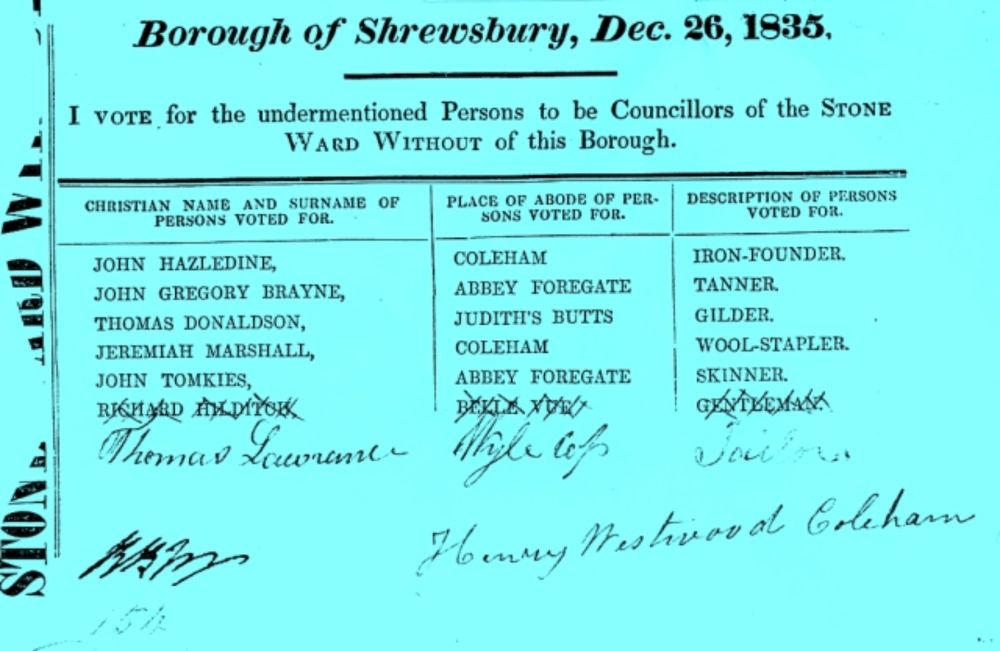 Borough of Shrewsbury, Dec. 26, 1835.
I VOTE for the undermentioned Persons to be Councillors of the STONE
WARD WITHOUT of this Borough.
CHRISTIAN NAME AND SURNAME OF PERSONS VOTED FOR. PLACE OF ABODE OF PERSONS VOTED FOR. DESCRIPTION OF PERSONS VOTED FOR.
JOHN HAZLEDINE, COLEHAM IRON-FOUNDER.
JOHN GREGORY BRAYNE, ABBEY FOREGATE TANNER.
THOMAS DONALDSON, JUDITH'S BUTTS GILDER.
JEREMIAH MARSHALL, COLEHAM WOOL-STAPLER.
JOHN TOMKIES, ABBEY FOREGATE SKINNER.
RICHARD HILDITCH, BELLE VUE GENTLEMAN.
Thomas Lawrance Wyle Cop Tailor.
Henry Westwood Coleham
154